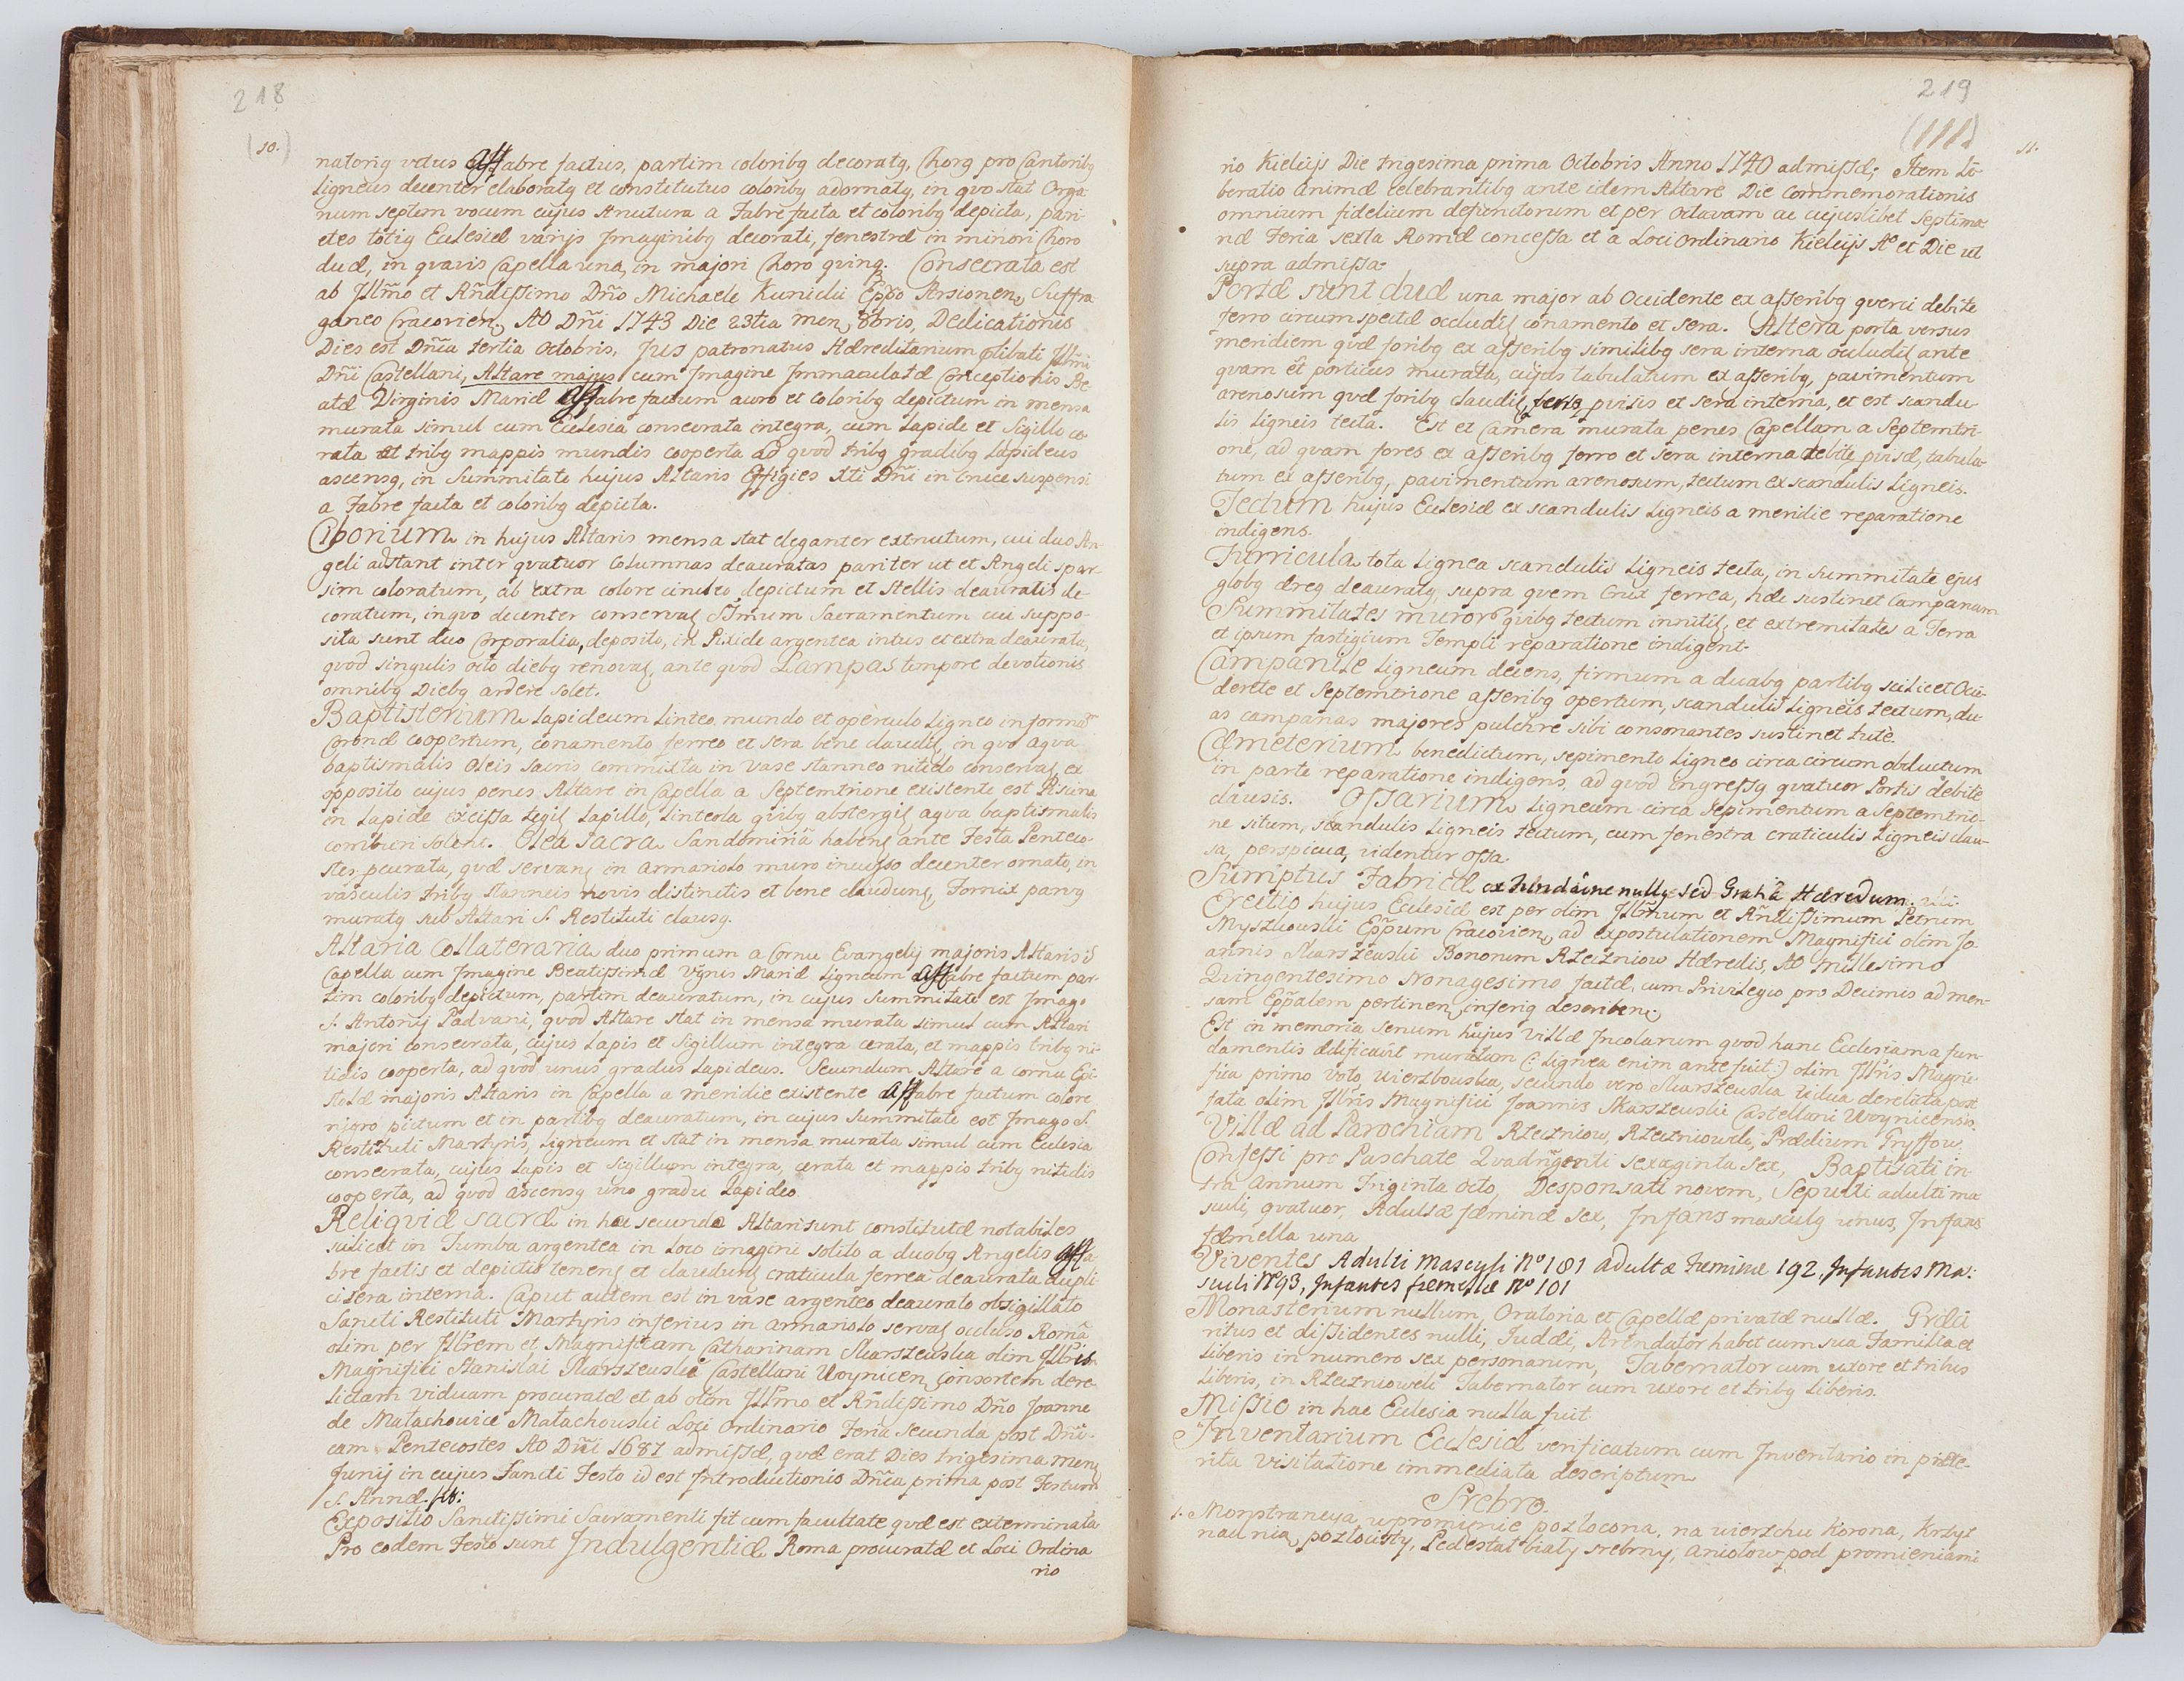 218
(10.)
natorig vetus affabre factus, partim coloribg decoratg, Chorg pro Cantoribg
Ligneus decenter elaboratg et constitutus coloribg adornatg, in qvo stat Orga-
num septem vocum cujus structura a Fabre facta et coloribg depicta, pari-
etes totig Ecclesiæ varijs Jmaginibg decorati, fenestræ in minori Choro
duæ, in qvavis Capella una, in majori Choro qvinq. Consecrata est
ab Jllm̃o et Añdissimo Dño Michaele Kunicki Ep̃po Arsionen, Suffra-
ganeo Cracovien, Ao Dñi 1743 Die 23tia men, 8bris, Dedicationis
Dies est Dñica tertia Octobris, Jus patronatus Hæreditarium Jllm̃i
Dñi Castellani, Altare majus cum Jmagine Jmmaculatæ Conceptionis Be-
atæ Virginis Mariæ affabre factum auro et coloribg depictum in mensa
murata simul cum Ecclesia consecrata integra, cum Lapide et Sigillo ce-
rata et tribg mappis mundis cooperta ad qvod tribg gradibg Lapideus
ascensg, in Summitate hujus Altaris Effigies Xti Dñi in Cruce suspensi
a Fabre facta et coloribg depicta.
Ciborium in hujus Altaris mensa stat eleganter extructum, cui duo An-
geli adstant inter qvatuor Columnas deauratas pariter ut et Angeli spar-
sim coloratum, ab extra colore depictum et Stellis deauratis de-
coratum, inqvo decenter conservaꝭ SSmum Sacramentum cui suppo-
sita sunt duo Corporalia, deposito, in Pixide argentea intus et extra deaurata,
qvod singulis octo diebg renovaꝭ, ante qvod Lampas tempore devotionis
omnibg Diebg ardere solet.
Baptisterium Lapideum Linteo mundo et operculo Ligneo in formã
Coronæ coopertum, conamento ferreo et sera bene claudiꝭ, in qvo aqva
baptismalis oleis sacris commixta in vase stanneo nitido conservaꝭ ex
opposito cujus penes Altare in Capella a Septemtrione existente est Piscina
in Lapide excissa tegiꝭ Lapillo, Linteola qvibg abstergiꝭ aqva baptismalis
comburi solent. Olea Sacra Sandomiriã habenꝭ ante Festa Penteco-
stes pcurata, qvæ servanꝭ in armariolo muro incluso decenter ornato, in
vasculis tribg stanneis novis distinctis et bene claudunꝭ, Fornix parvg
muratg sub Altari S. Restituti clausg.
Altaria Collateraria duo primum a Cornu Evangelij majoris Altaris
Capella cum Jmagine Beatissimæ Vgnis Mariæ Ligneum affabre factum par-
tim coloribg depictum, partim deauratum, in cujus Summitate est Jmago
S. Antonij Padvani, qvod Altare stat in mensa murata simul cum Altari
majori consecrata, cujus Lapis et Sigillum integra cerata, et mappis tribg ni-
tidis cooperta, ad qvod unus gradus Lapideus. Secundum Altare a cornu Epi-
stolæ majoris Altaris in Capella a meridie existente affabre factum colore
nigro pictum et in partibg deauratum, in cujus Summitate est Jmago S.
Restituti Martyris, Ligneum et stat in mensa murata simul cum Ecclesia
consecrata, cujus Lapis et Sigillum integra, cerata et mappis tribg nitidis
cooperta, ad qvod ascensg uno gradu Lapideo.
Reliqviæ sacræ in hoc secundo Altari sunt constitutæ notabiles
scilicet in Tumba argentea in Loco imaginis solito a duabg Angelis affa-
bre factis et depictis tenenꝭ et claudunꝭ craticula ferrea deaurata dupli-
ci sera interna. Caput autem est in vase argenteo deaurato obsigillato
Sancti Restituti Martyris inferius in armariolo servaꝭ occluso Romã
olim per Jllrem et Magnificam Catharinam Skarszewska olim Jllris
Magnifici Stanislai Skarszewski Castellani Woynicen, consortem dere-
lictam viduam procuratæ et ab olim Jllmo et Rñdissimo Dño Joanne
de Małachowice Małachowski Loci Ordinario Feria Secunda post Dñi-
cam Pentecostes Ao Dñi 1687 admissæ, qvæ erat Dies trigesima menꝭ
Junij in cujus Sancti Festo id est Introductionis Dñica prima post Festum
S. Annæ fit:
Expositio Sanctissimi Sacramenti fit cum facultate qvæ est exterminata
Pro eodem Festo sunt Jndulgentiæ Roma procuratæ et Loci Ordina
rio
219
(111)
11.
rio Kielcijs Die trigesima prima Octobris Anno 1740 admissæ; Item Li-
beratio animæ celebrantibg ante idem Altare Die Commemorationis
omnium fidelium defunctorum et per Octavam ac cujuslibet Septima-
næ Feria sexta Romæ concessa et a Loci Ordinario Kielcijs Ao et Die ut
supra admissa.
Portæ sunt duæ una major ab Occidente ex asseribg qverci debite
ferro circumspectæ occludiꝭ conamento et sera. Altera porta versus
meridiem qvæ foribg ex asseribg similibg sera interna occludiꝭ ante
qvam et porticus murata, cujus tabulatum ex asseribg, pavimentum
arenosum qvæ foribg claudiꝭ ferro pvisis et sera interna, et est scandu-
lis Ligneis tecta. Est et Camera murata penes Capellam a Septemtri-
one, ad qvam fores ex asseribg ferro et sera interna debite pvisæ, tabula-
tum ex asseribg, pavimentum arenosum, tectum ex scandulis Ligneis.
Tectum hujus Ecclesiæ ex scandulis Ligneis a meridie reparatione
indigens.
Turricula tota Lignea scandulis Ligneis tecta, in summitate ejus
globg æreg deauratg, supra qvem Crux ferrea, hæc sustinet Campanam
Summitates muroꝝ qvibg tectum innitiꝭ et extremitates a Terra
et ipsum fastigium Templi reparatione indigent.
Campanile Ligneum decens, firmum a duabg partibg scilicet Occi-
dente et Septemtrione asseribg opertum, scandulis Ligneis tectum, du-
as campanas majores pulchre sibi consonantes sustinet tute.
Cæmeterium benedictum, sepimento Ligneo circa circum obductum
in parte reparatione indigens, ad qvod ingressg qvatuor Portis debite
clausis. Ossarium Ligneum circa Sepimentum a Septemtrio-
ne situm, scandulis Ligneis tectum, cum fenestra craticulis Ligneis clau-
sa, perspicua, videntur ossa.
Sumptus Fabricæ ex nullg sed Gratia Hæredum.
Erectio hujus Ecclesiæ est per olim Jllrmum et Añdissimum Petrum
Myszkowski Ep̃pum Cracovien, ad expostulationem Magnifici olim Jo-
annis Skarszewski Bonorum Rzeczniow Hæredis, Ao Millesimo
Qvingentesimo Nonagesimo facta, cum Privilegio pro Decimis ad men-
sam Ep̃palem pertinen, inferig describenꝭ.
Est in memoria senum hujus Villæ Jncolarum qvod hanc Ecclesiam a fun-
damentis ædificavit muratam (: Lignea enim ante fuit :) olim Jllris Magni-
fica primo voto Wierzbowska, secundo vero Skarszewska vidua derelicta post
fata olim Jllris Magnifici Joannis Skarszewski Castellani Woynicensis.
Villæ ad Parochiam Rzeczniow, Rzeczniowek, Prædium Gryffow.
Confessi pro Paschate Qvadrigenti sexaginta sex, Baptisati in-
tra annum Triginta octo, Desponsati novem, Sepulti adulti ma-
sculi, qvatuor, Adultæ fæminæ sex, Jnfans masculg unus, Jnfans
fæmella una
Viventes Adulti Masculi No 181 adultæ Fæminæ 192, Jnfantes Ma:
sculi No 93, Jnfantes fæmellæ No 101
Monasterium nullum, Oratoria et Capellæ privatæ nullæ. Græci
ritus et dissidentes nulli, Judæi, Arendator habet cum sua Familia et
Liberis in numero sex personarum, Tabernator cum uxore et tribus
Liberis, in Rzeczniowek Tabernator cum uxore et tribg Liberis.
Missio in hac Ecclesia nulla fuit
Jnventarium Ecclesiæ verificatum cum Jnventario in præte-
rita visitatione immediata descriptum
Srebro.
1. Monstrancya w promienie pozłocona, na wierzchu Korona, Krzyż
nad nią pozłocisty, Pedestał biały srebrny, aniołow pod promieniami